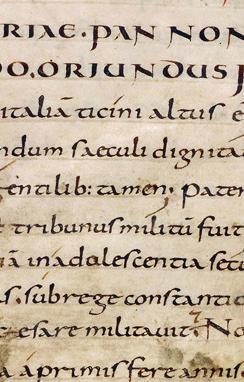 RIAE·PAN NON
DO,ORIUNDUS
italiā ticini altus e
ndum saeculi dignitat
entilib: tamen; Pater
tribunus militū fuit
in adolescentia secu
s·subrege constantio
esare militavit· No
a a primis fere annis